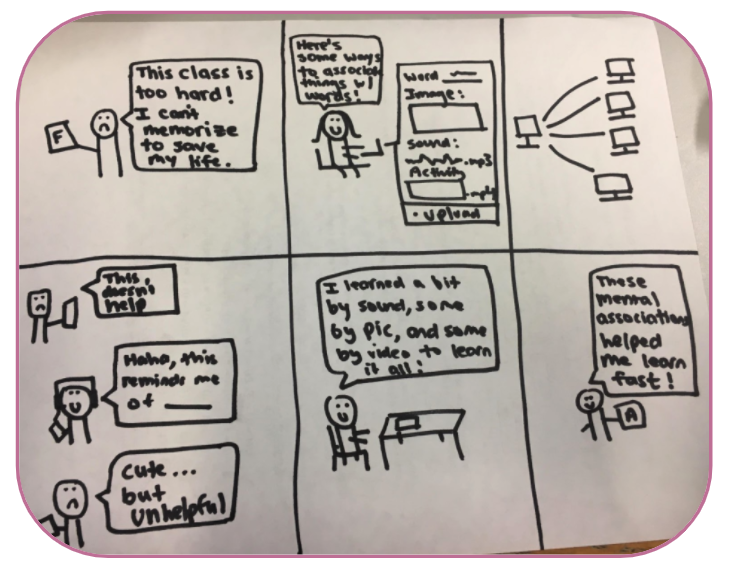 F
This class is
too hard!
I can't
memorize
to save
my life.
Here's
some ways
to associate
things w/
words!
Word
Image:
Sound:
.mp3
Activity
.mp4
• upload
This
doesn't
help
Haha, this
reminds me
of ____
cute...
but
unhelpful
I learned a bit
by sound, some
by pic, and some
by video to learn
it all!
These
mental
associations
helped
me learn
fast!
A